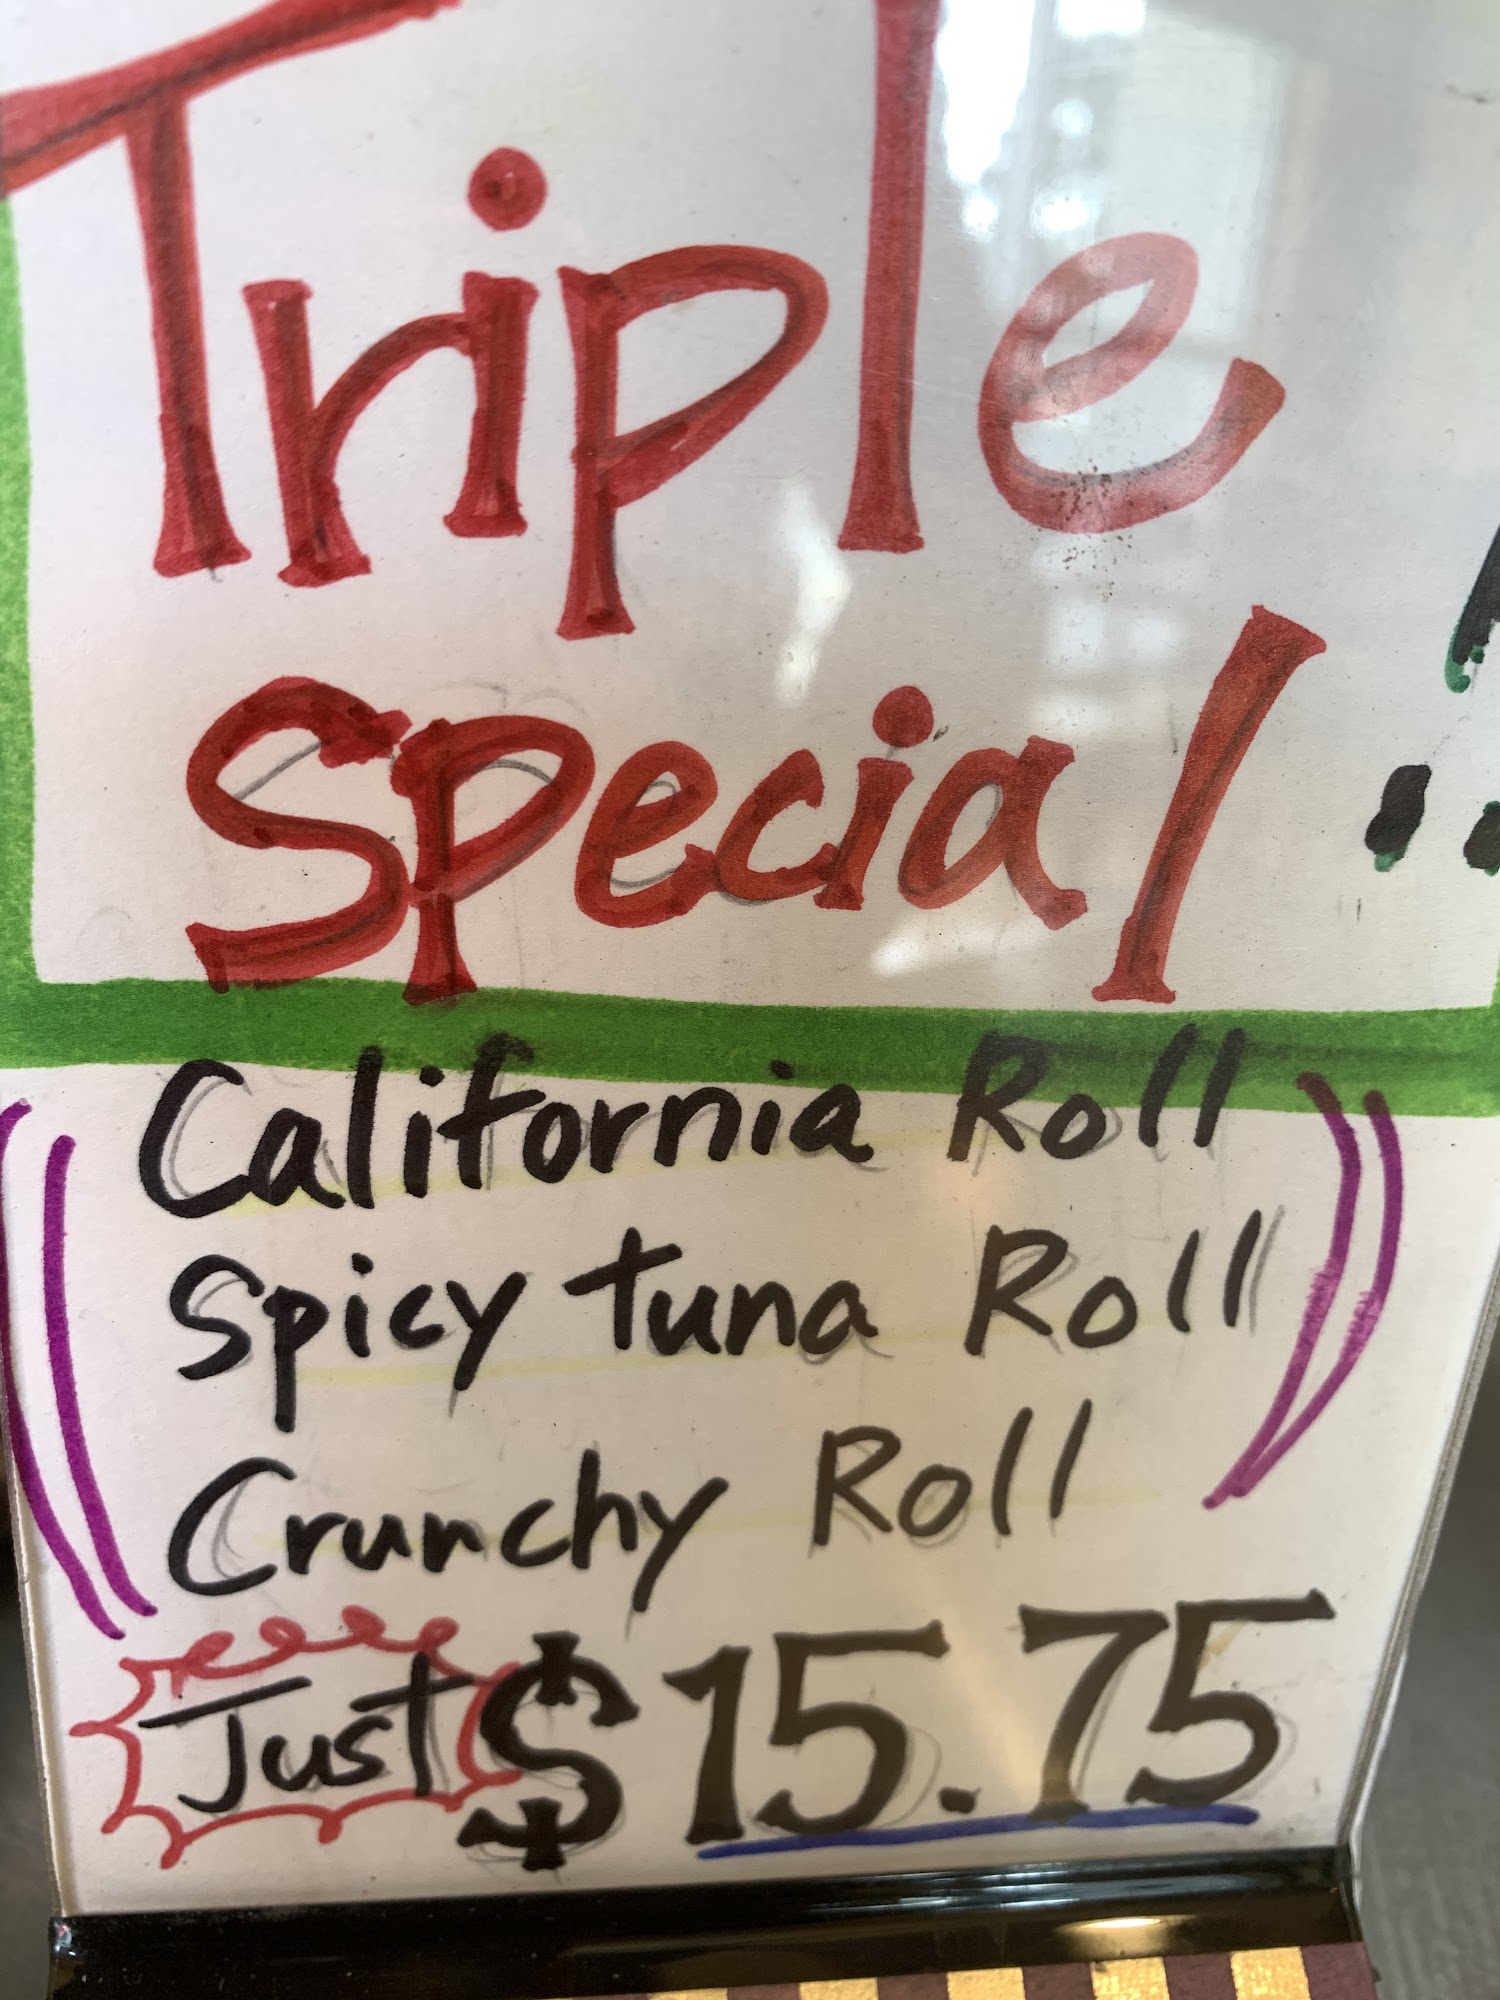 Triple
Special
!!
California Roll
Spicy tuna Roll
Crunchy Roll
Just $15.75